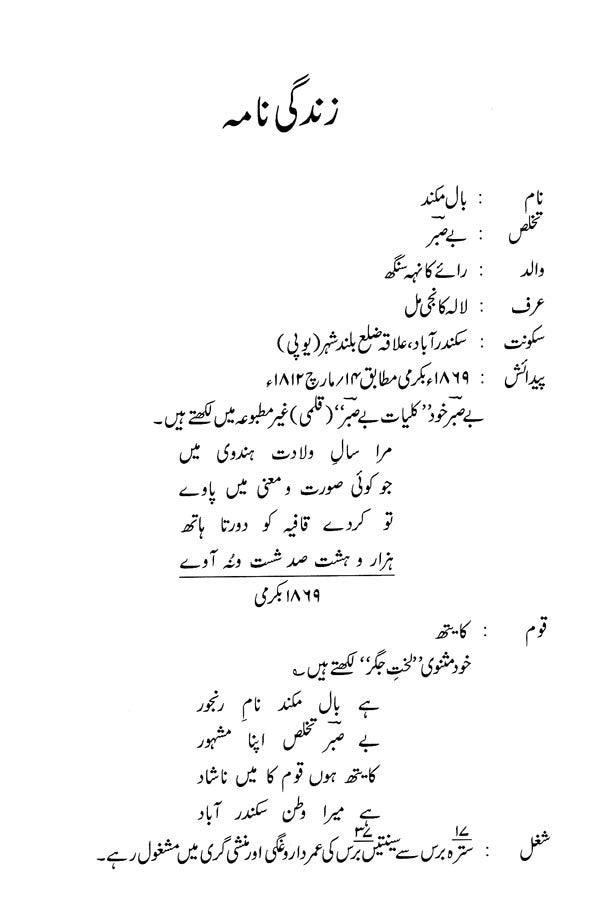 زندگی نامہ
نام : بال مکند
تخلص : بے صبرؔ
والد : رائے کانہہ سنگھ
عرف : لالہ کانجی مل
سکونت : سکندرآباد، علاقہ ضلع بلند شہر (یوپی)
پیدائش : ۱۸۶۹ء بکرمی مطابق ۱۴/مارچ ۱۸۱۲ء
بے صبرؔ خود ”کلیات بے صبرؔ“ (قلمی) غیر مطبوعہ میں لکھتے ہیں۔
مرا سالِ ولادت ہندوی میں
جو کوئی صورت و معنی میں پاوے
تو کردے قافیہ کو دورتا ہاتھ
ہزار و ہشت صد شست ونُہ آوے
۱۸۶۹ بکرمی
قوم : کایتھ
خود مثنوی ”لختِ جگر“ لکھتے ہیں ؎
ہے بال مکند نامِ رنجور
بے صبرؔ تخلص اپنا مشہور
کایتھ ہوں قوم کا میں ناشاد
ہے میرا وطن سکندر آباد
۱۷ ۳۷
شغل : سترہ برس سے سینتیس برس کی عمر داروغگی اور منشی گری میں مشغول رہے۔